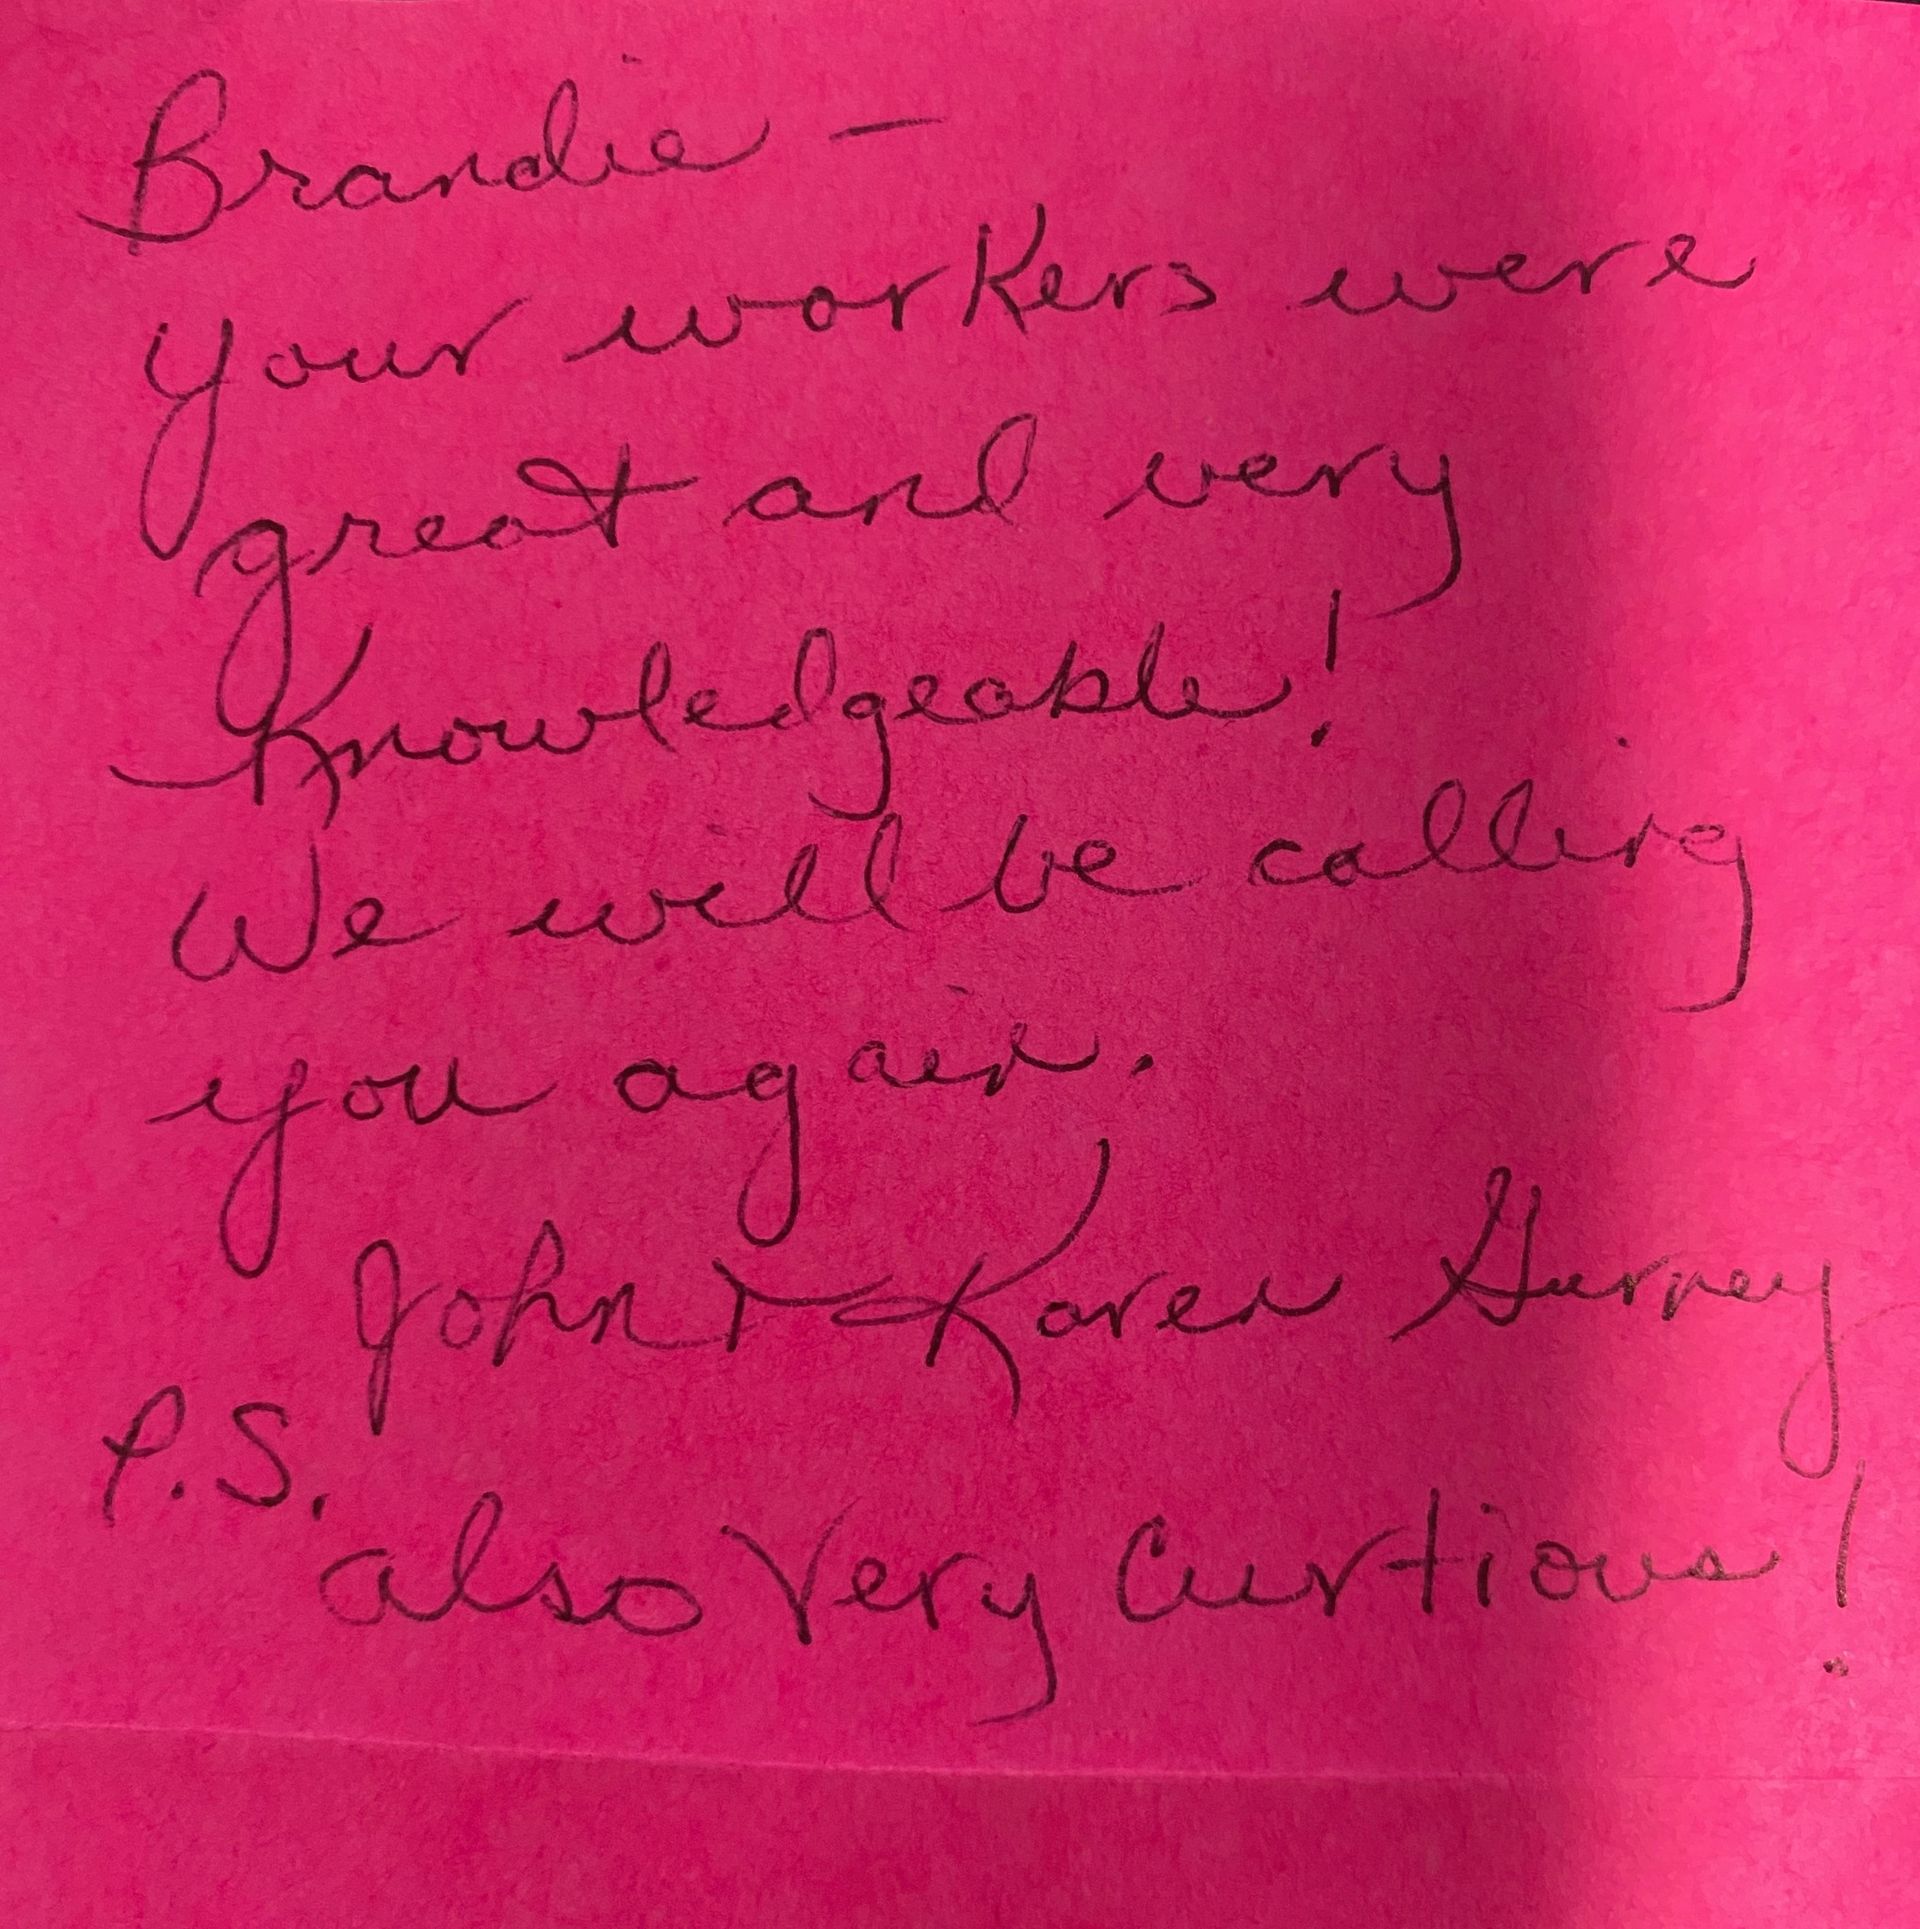 Brandie —
your workers were
great and very
Knowledgeable!
We will be calling
you again.
John & Karen Gurney
P.S.
also Very Curtious!